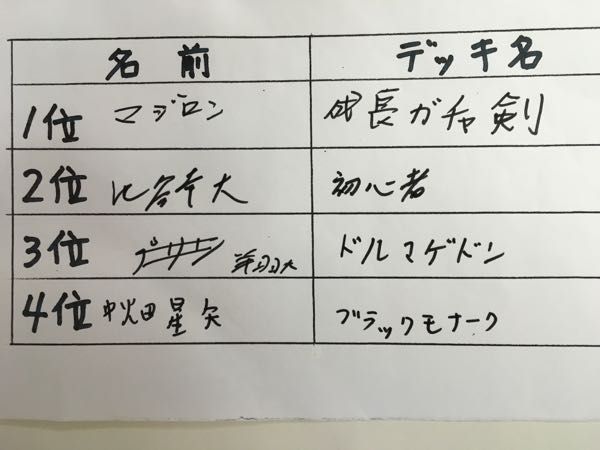 名前 デッキ名
1位 マジロン 成長ガチャ剣
2位 大 初心者
3位 ドルマゲドン
4位 田星矢 ブラックモナーク